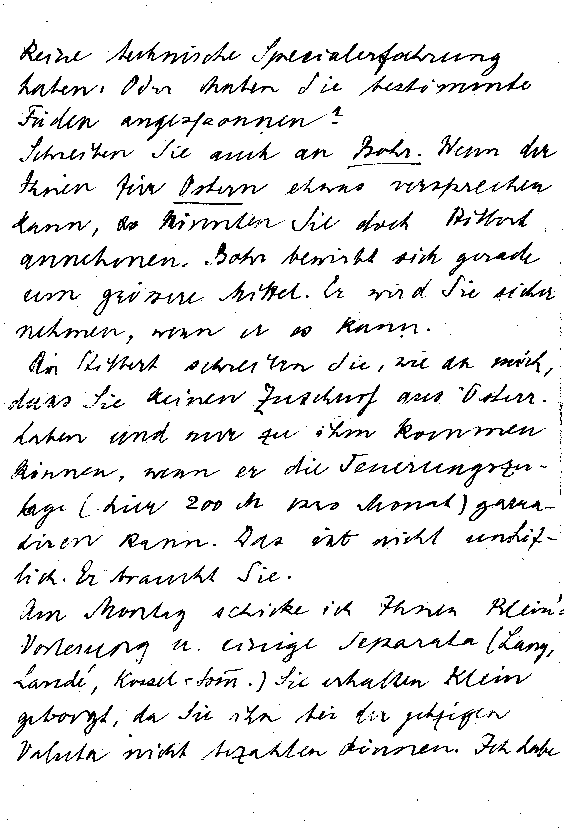 Keine technische Specialerfahrung
haben. Oder haben Sie bestimmte
Fäden angesponnen?
Schreiben Sie auch an Bohr. Wenn der
Ihnen für Ostern etwas versprechen
kann, so könnten Sie doch
annehmen. Bohr bewirbt sich gerade
um grössere Mittel. Er wird Sie sicher
nehmen, wenn er es kann.
schreiben Sie, wie an mich,
dass Sie keinen Zuschuss aus Österr.
haben und nur zu ihm kommen
können, wenn er die Teuerungszu-
lage (hier 200 M pro Monat) garan-
tiren kann. Das ist nicht unhöf-
lich. Er braucht Sie.
Am Montag schicke ich Ihnen Klein's
Vorlesung u. einige Separata (Lang,
Landé, Kossel-Som̄.) Sie erhalten Klein
geborgt, da Sie ihn bei der jetzigen
Valuta nicht bezahlen können. Ich habe